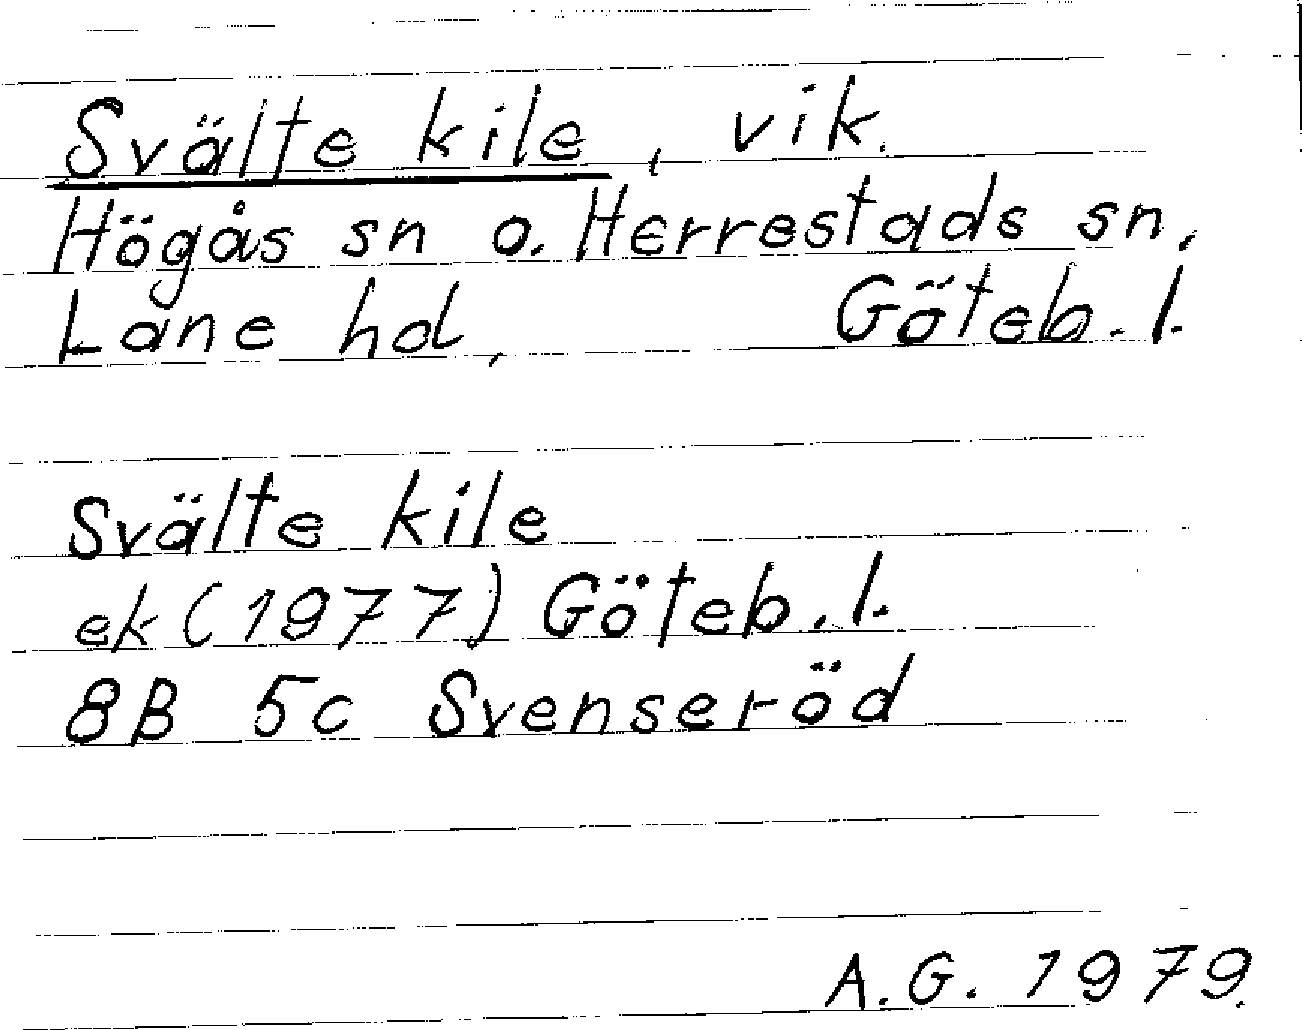 Svälte kile, vik.
Högås sn o. Herrestads sn,
Lane hd, Göteb. l.
Svälte kile
ek (1977) Göteb. l.
8B 5c Svenseröd
A.G. 1979.